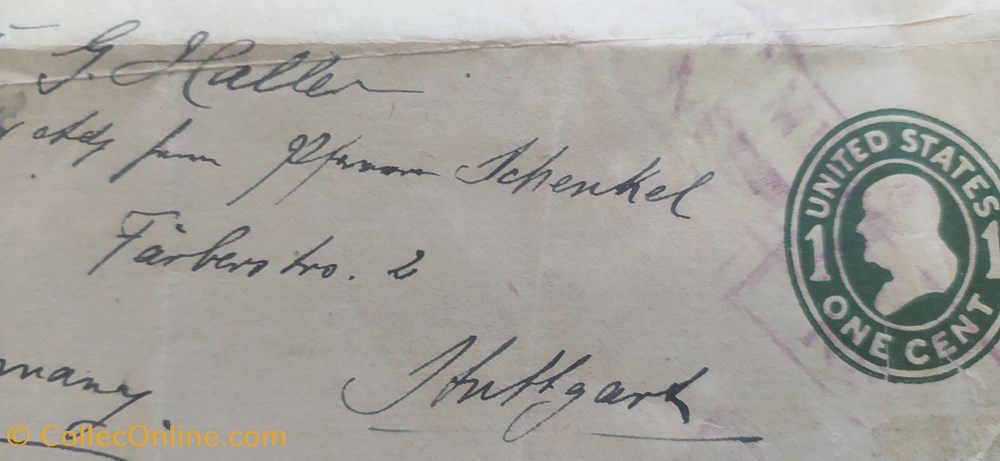 G. Haller
Adr Frau Pfarrer Schenkel
Färberstrs. 2
Stuttgart
many
UNITED STATES
1 1
ONE CENT
© CollecOnline.com